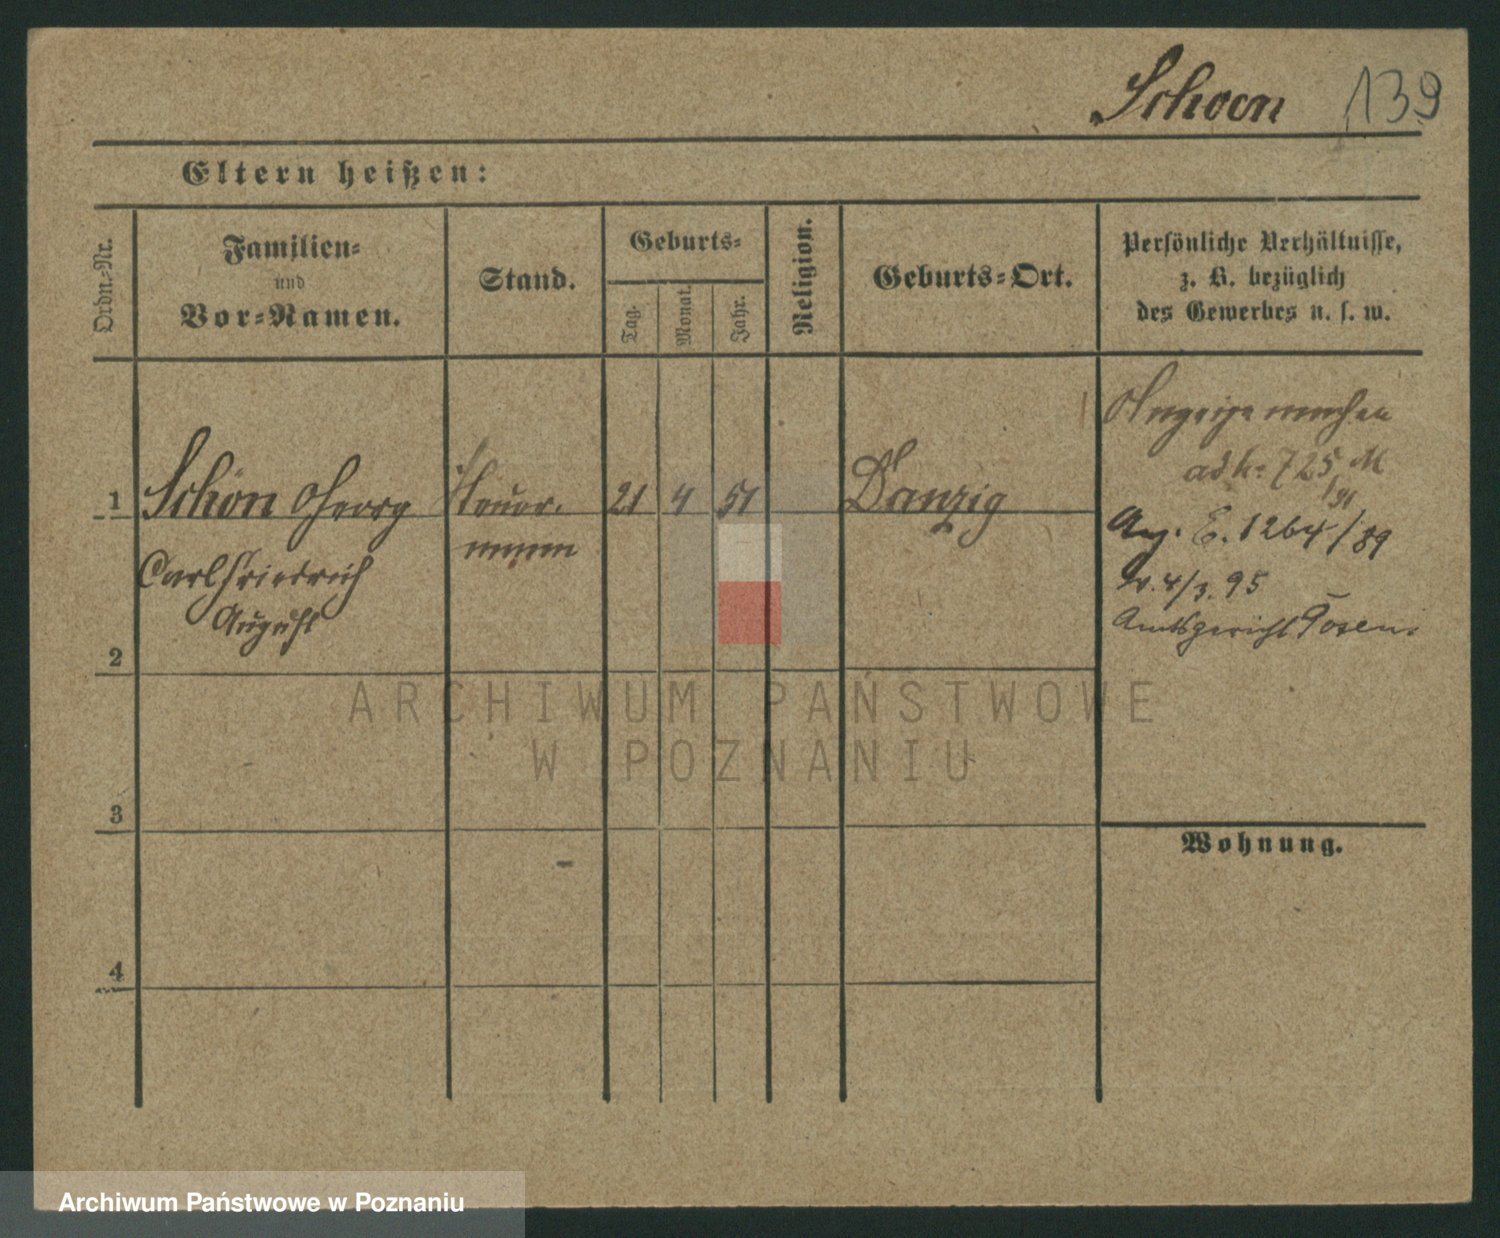 Schoen 139
Eltern heißen:
Ordn.-Nr.
Familien-
und
Vor-Namen.
Stand.
Geburts-
Tag.
Monat.
Jahr.
Religion.
Geburts-Ort.
Persönliche Verhältnisse,
z. B. bezüglich
des Gewerbes u. s. w.
1 Schön Georg Steuer- 21 4 51 Danzig
mann
Carl Friedrich
August
2
3
4
Anzeige machen
ad h. 725 M
/91
Anz. E. 1264/89
v. 4/3. 95
Amtsgericht Posen.
Wohnung.
ARCHIWUM PAŃSTWOWE
W POZNANIU
Archiwum Państwowe w Poznaniu